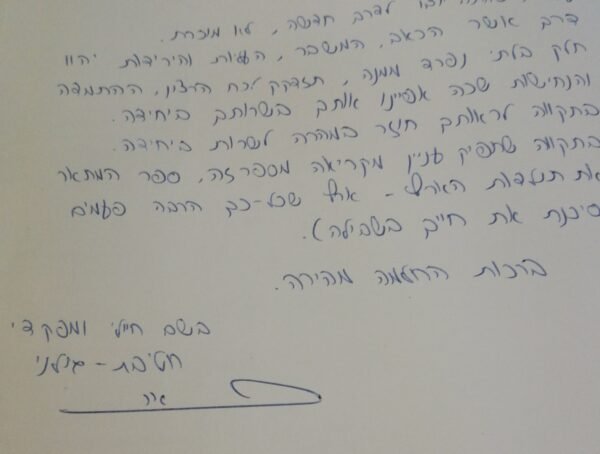 לדרך חדשה, לא מוכרת.
דרך אשר הכאב, המשבר, העליות והירידות יהוו
חלק בלתי נפרד ממנה, תזדקק לכח הרצון, ההתמדה
והנחישות שכה אפיינו אותך בשרותך ביחידה.
בתקווה לראותך חוזר במהרה לשרות ביחידה.
בתקווה שתפיק עניין מקריאה מספר זה, ספר המתאר
את תולדות הארץ - ארץ שכל-כך הרבה פעמים
סיכנת את חייך בשבילה).
ברכות החלמה מהירה.
בשם חיילי ומפקדי
חטיבת - גולני